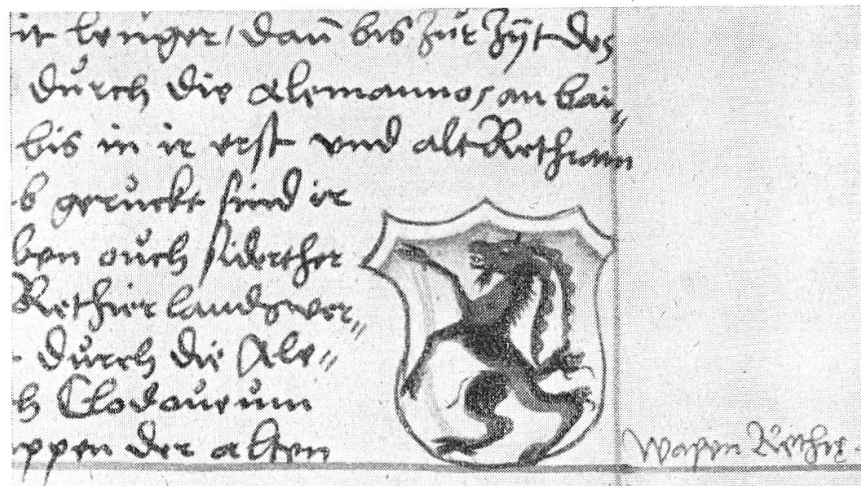 it lenger / dañ bis zůr Zÿt des
durch die Alemannos an bai⸗
bis in ir erst vnd alt Rethiam
b gerückt sind ir
ben ouch siderther
Rethier landswer⸗
durch die Ale⸗
h Clodoueum
appen der alten
Wapen Rethie